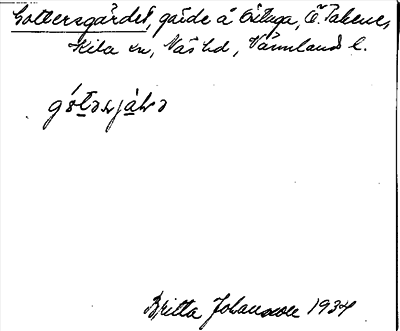 Gottersgärdet, gärde å Östuga, Ö. Takene,
Kila sn, Näs hd, Värmlands l.
Britta Johansson 1934